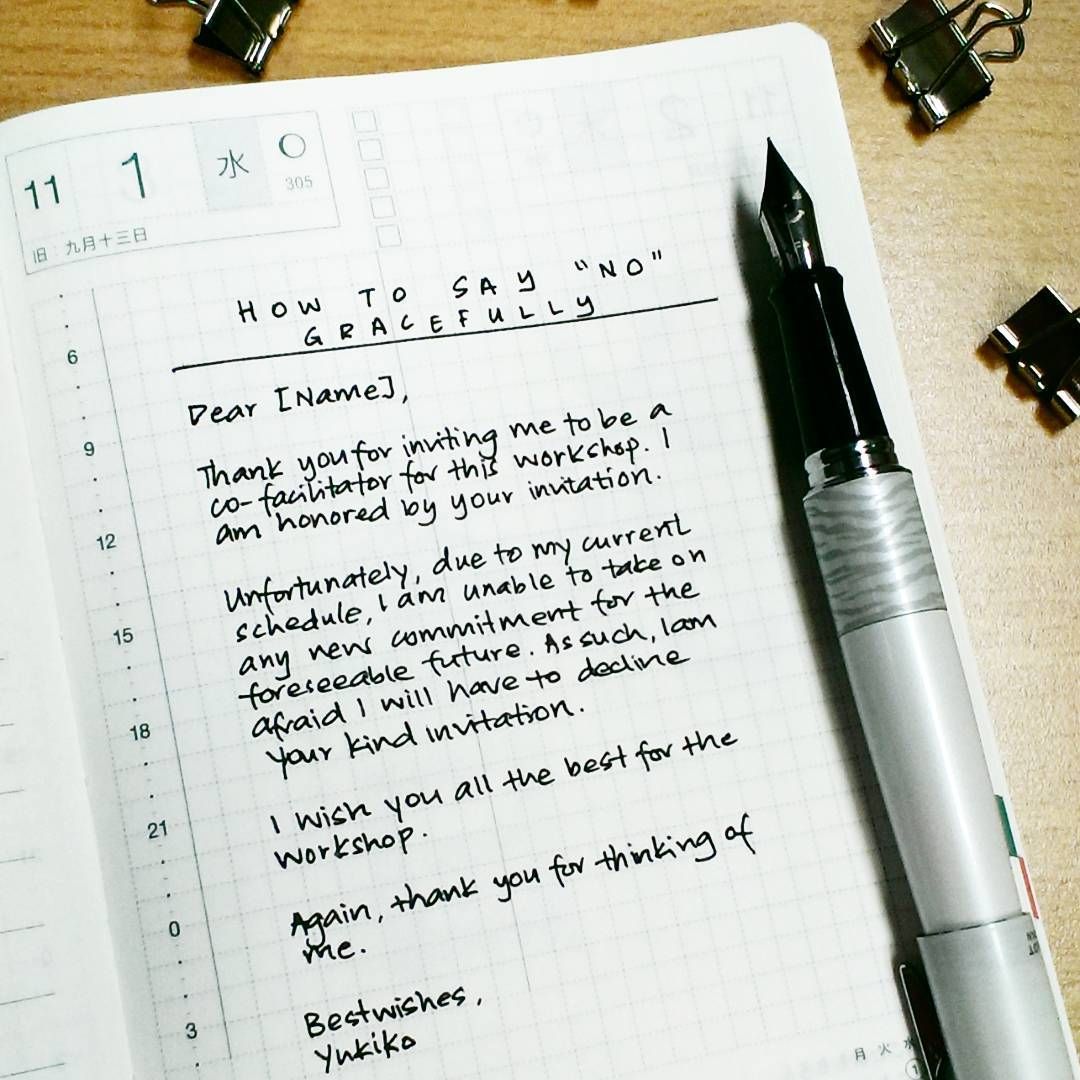 11 1 水
305
旧 九月十三日
HOW TO SAY "NO"
GRACEFULLY
6
Dear [Name],
9
Thank you for inviting me to be a
co-facilitator for this workshop. I
am honored by your invitation.
12
Unfortunately, due to my current
schedule, I am unable to take on
any new commitment for the
15
foreseeable future. As such, I am
afraid I will have to decline
your kind invitation.
18
I wish you all the best for the
workshop.
21
Again, thank you for thinking of
me.
0
Best wishes,
Yukiko
3
月 火 水
1